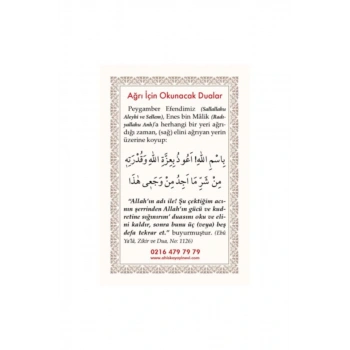 Ağrı İçin Okunacak Dualar
Peygamber Efendimiz (Sallallahu
Aleyhi ve Sellem), Enes bin Mâlik (Radı-
yallahu Anh)'a herhangi bir yeri ağrı-
dığı zaman, (sağ) elini ağrıyan yerin
üzerine koyup:
بِاسْمِ اللّٰهِ! اَعُوذُ بِعِزَّةِ اللّٰهِ وَقُدْرَتِهِ
مِنْ شَرِّ مَا اَجِدُ مِنْ وَجَعِى هٰذَا
"Allah'ın adı ile! Şu çektiğim acı-
nın şerrinden Allah'ın gücü ve kud-
retine sığınırım' duasını oku ve eli-
ni kaldır, sonra bunu üç (veya) beş
defa tekrar et." buyurmuştur. (Ebû
Ya'lâ, Zikir ve Dua, No: 1126)
0216 479 79 79